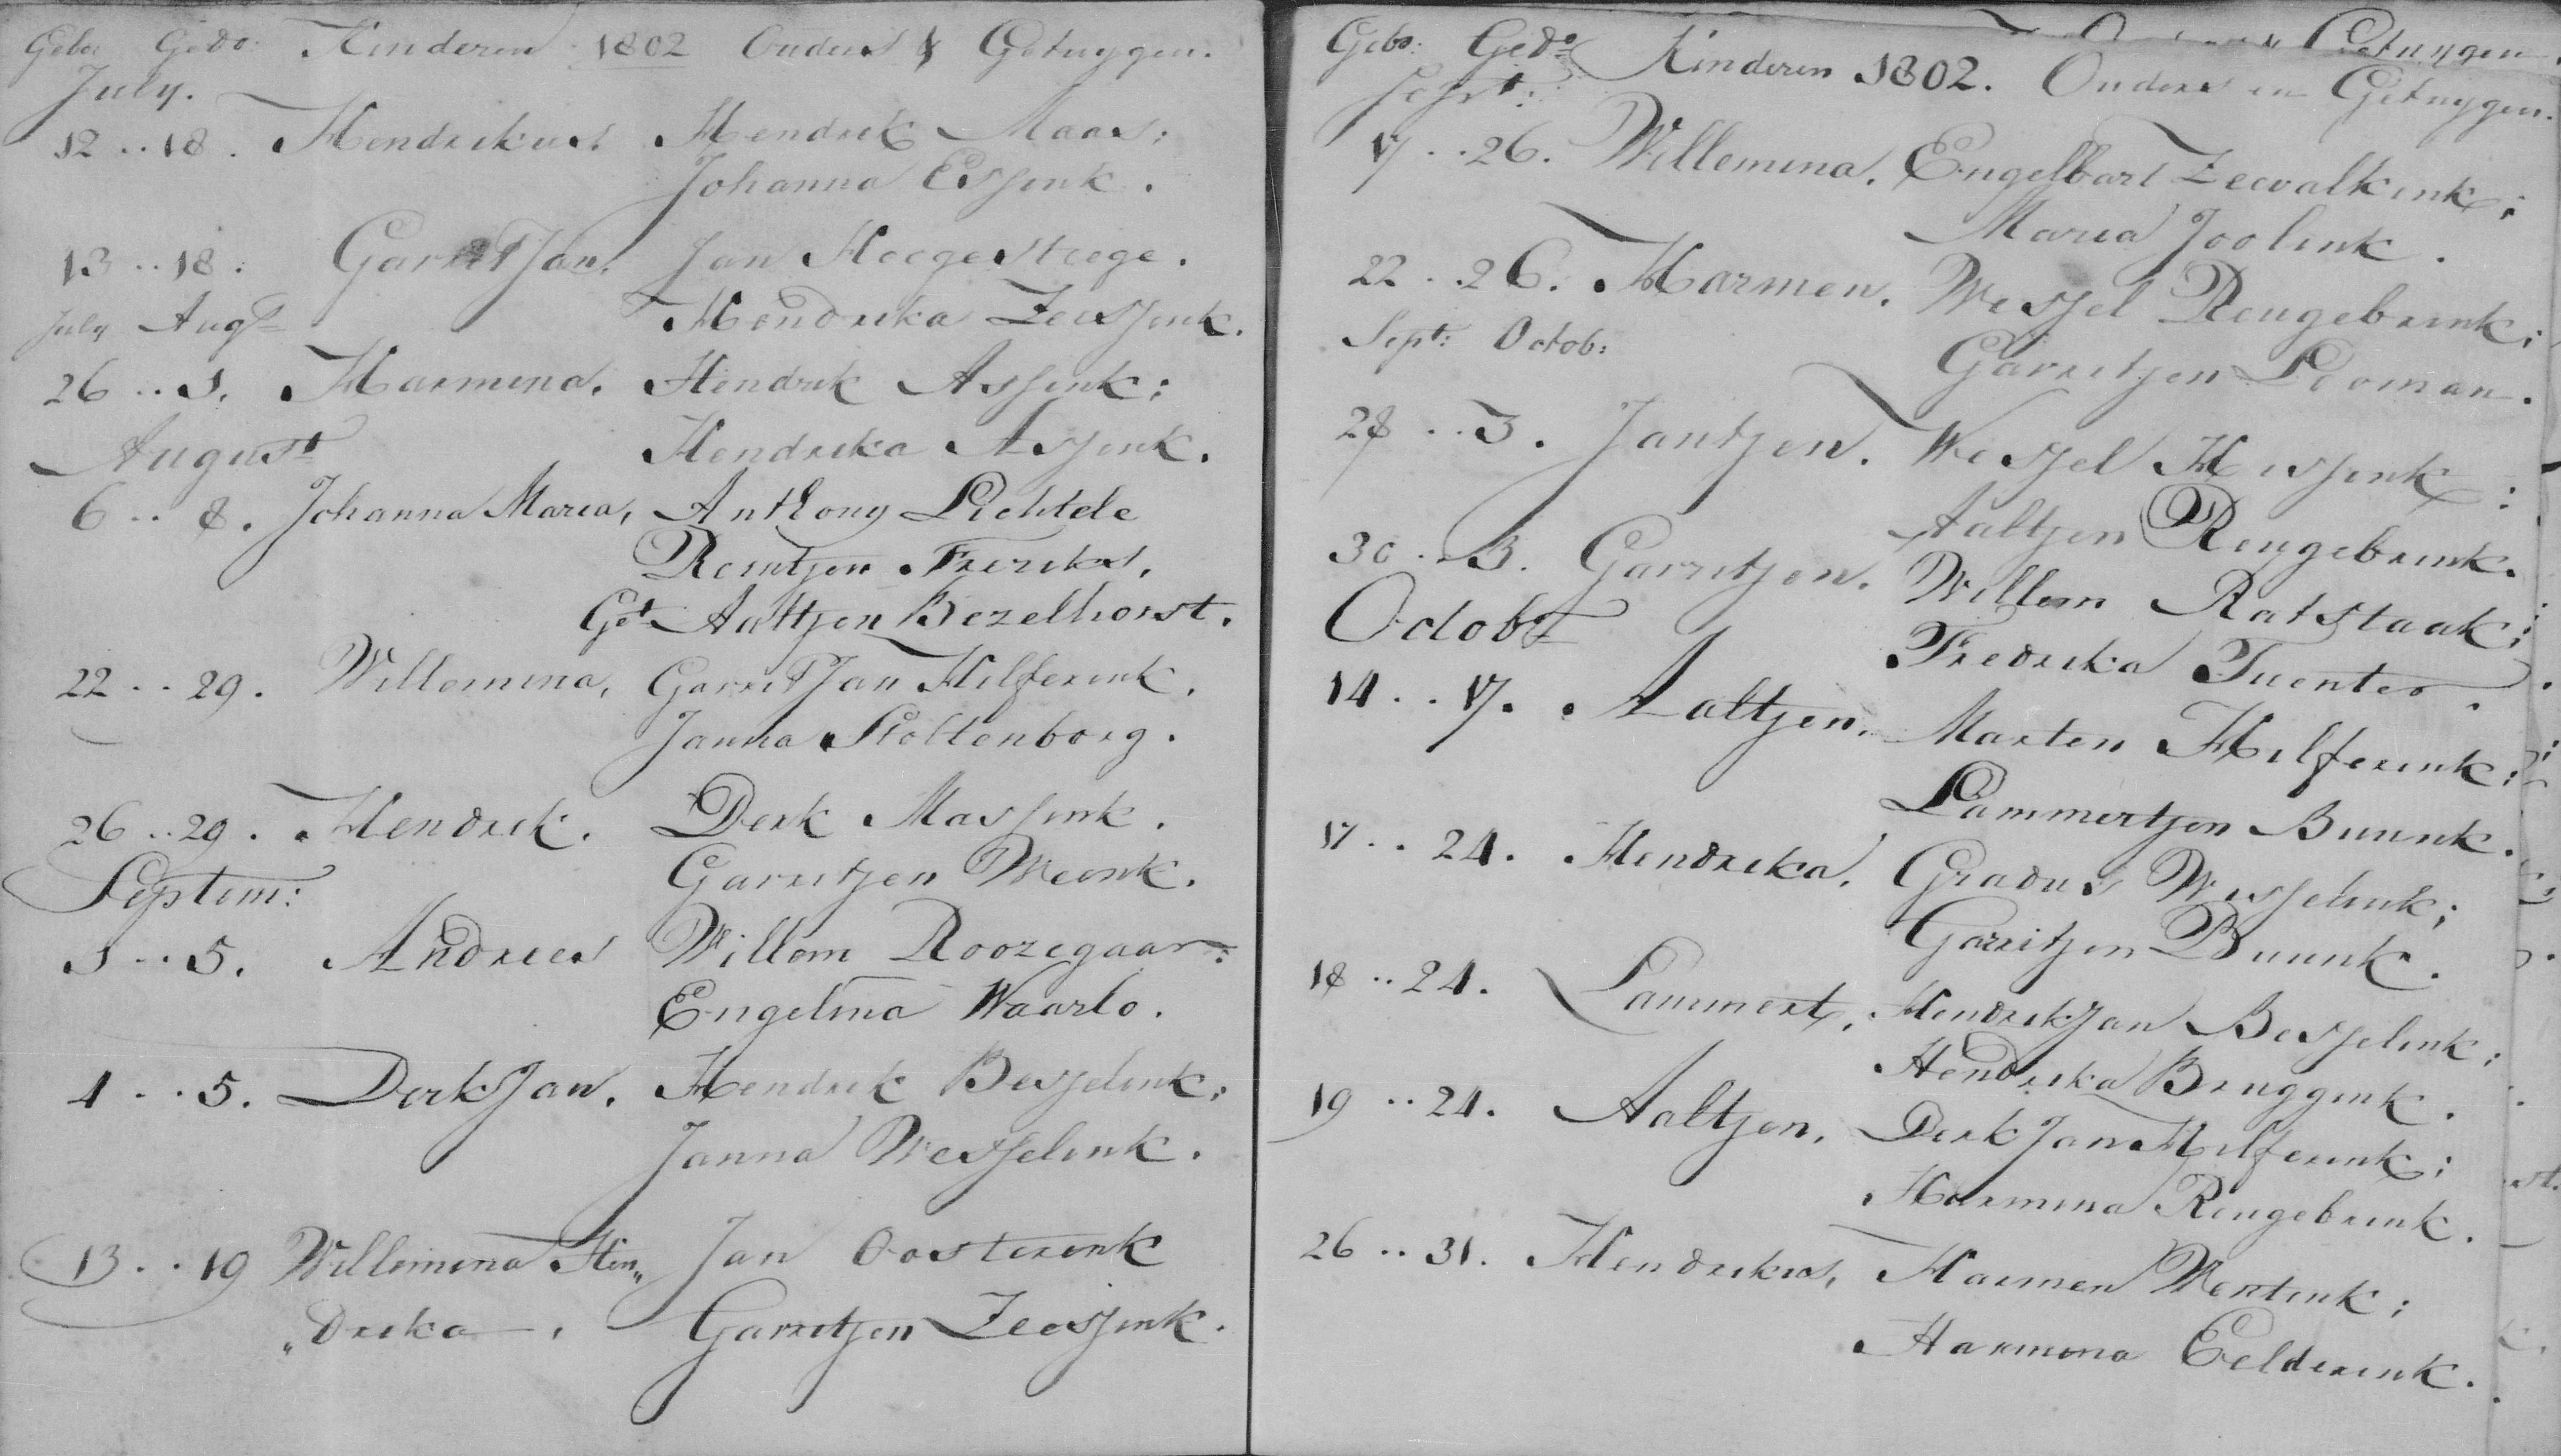 Gebo Gedo: Kinderen 1802 Ouders & Getuygen.
July.
12 .. 18. Hendrikus. Hendrik Maas;
Johanna Essink.
13 .. 18. Garrit Jan. Jan Heegesteege.
Hendrika Zeessink.
July Augt
26 .. 1. Harmina. Hendrik Assink;
Hendrika Assink.
August
6 .. 8. Johanna Maria, Anthony Lichtele
Reintjen Freriks,
Get Aaltjen Bezelhorst.
22 .. 29. Willemina, Garrit Jan Hilferink,
Janna Stoltenborg.
26 .. 29. Hendrik. Derk Massink.
Garritjen Meenk.
Septem:
1 .. 5. Andries Willem Roozegaar;
Engelina Waarlo.
4 .. 5. Derk Jan. Hendrik Besselink;
Janna Wesselink.
13 .. 19 Willemina Hen„ Jan Oosterink
„drika. Garritjen Zeessink.
Getuygen.
Gebo: Gedo: Kinderen 1802. Ouders en Getuygen.
Sept:
17 .. 26. Willemina. Engelbart Zeevalkink;
Maria Joolink.
22 .. 26. Harmen. Wessel Reugebrink;
Garritjen Looman.
Sept: Octob:
28 .. 3. Jantjen. Wessel Hissink;
Aaltjen Reugebrink.
30 .. 3. Garritjen. Willem Ratstaak;
Fredrika Tuenter.
Octobr
14 .. 17. Aaltjen. Marten Hilferink;
Lammertjen Buunk.
17 .. 24. Hendrika. Gradus Wesselink;
Garritjen Buunk.
18 .. 24. Lammert, Hendrik Jan Besselink;
Hendrika Bruggink.
19 .. 24. Aaltjen, Derk Jan Hilferink;
Harmina Reugebrink.
26 .. 31. Hendrikus, Harmen Wentink;
Harmina Eelderink.